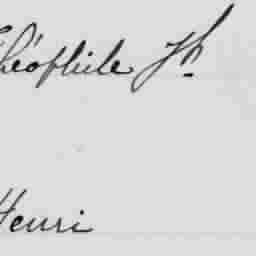 Théophile Jh.
Henri